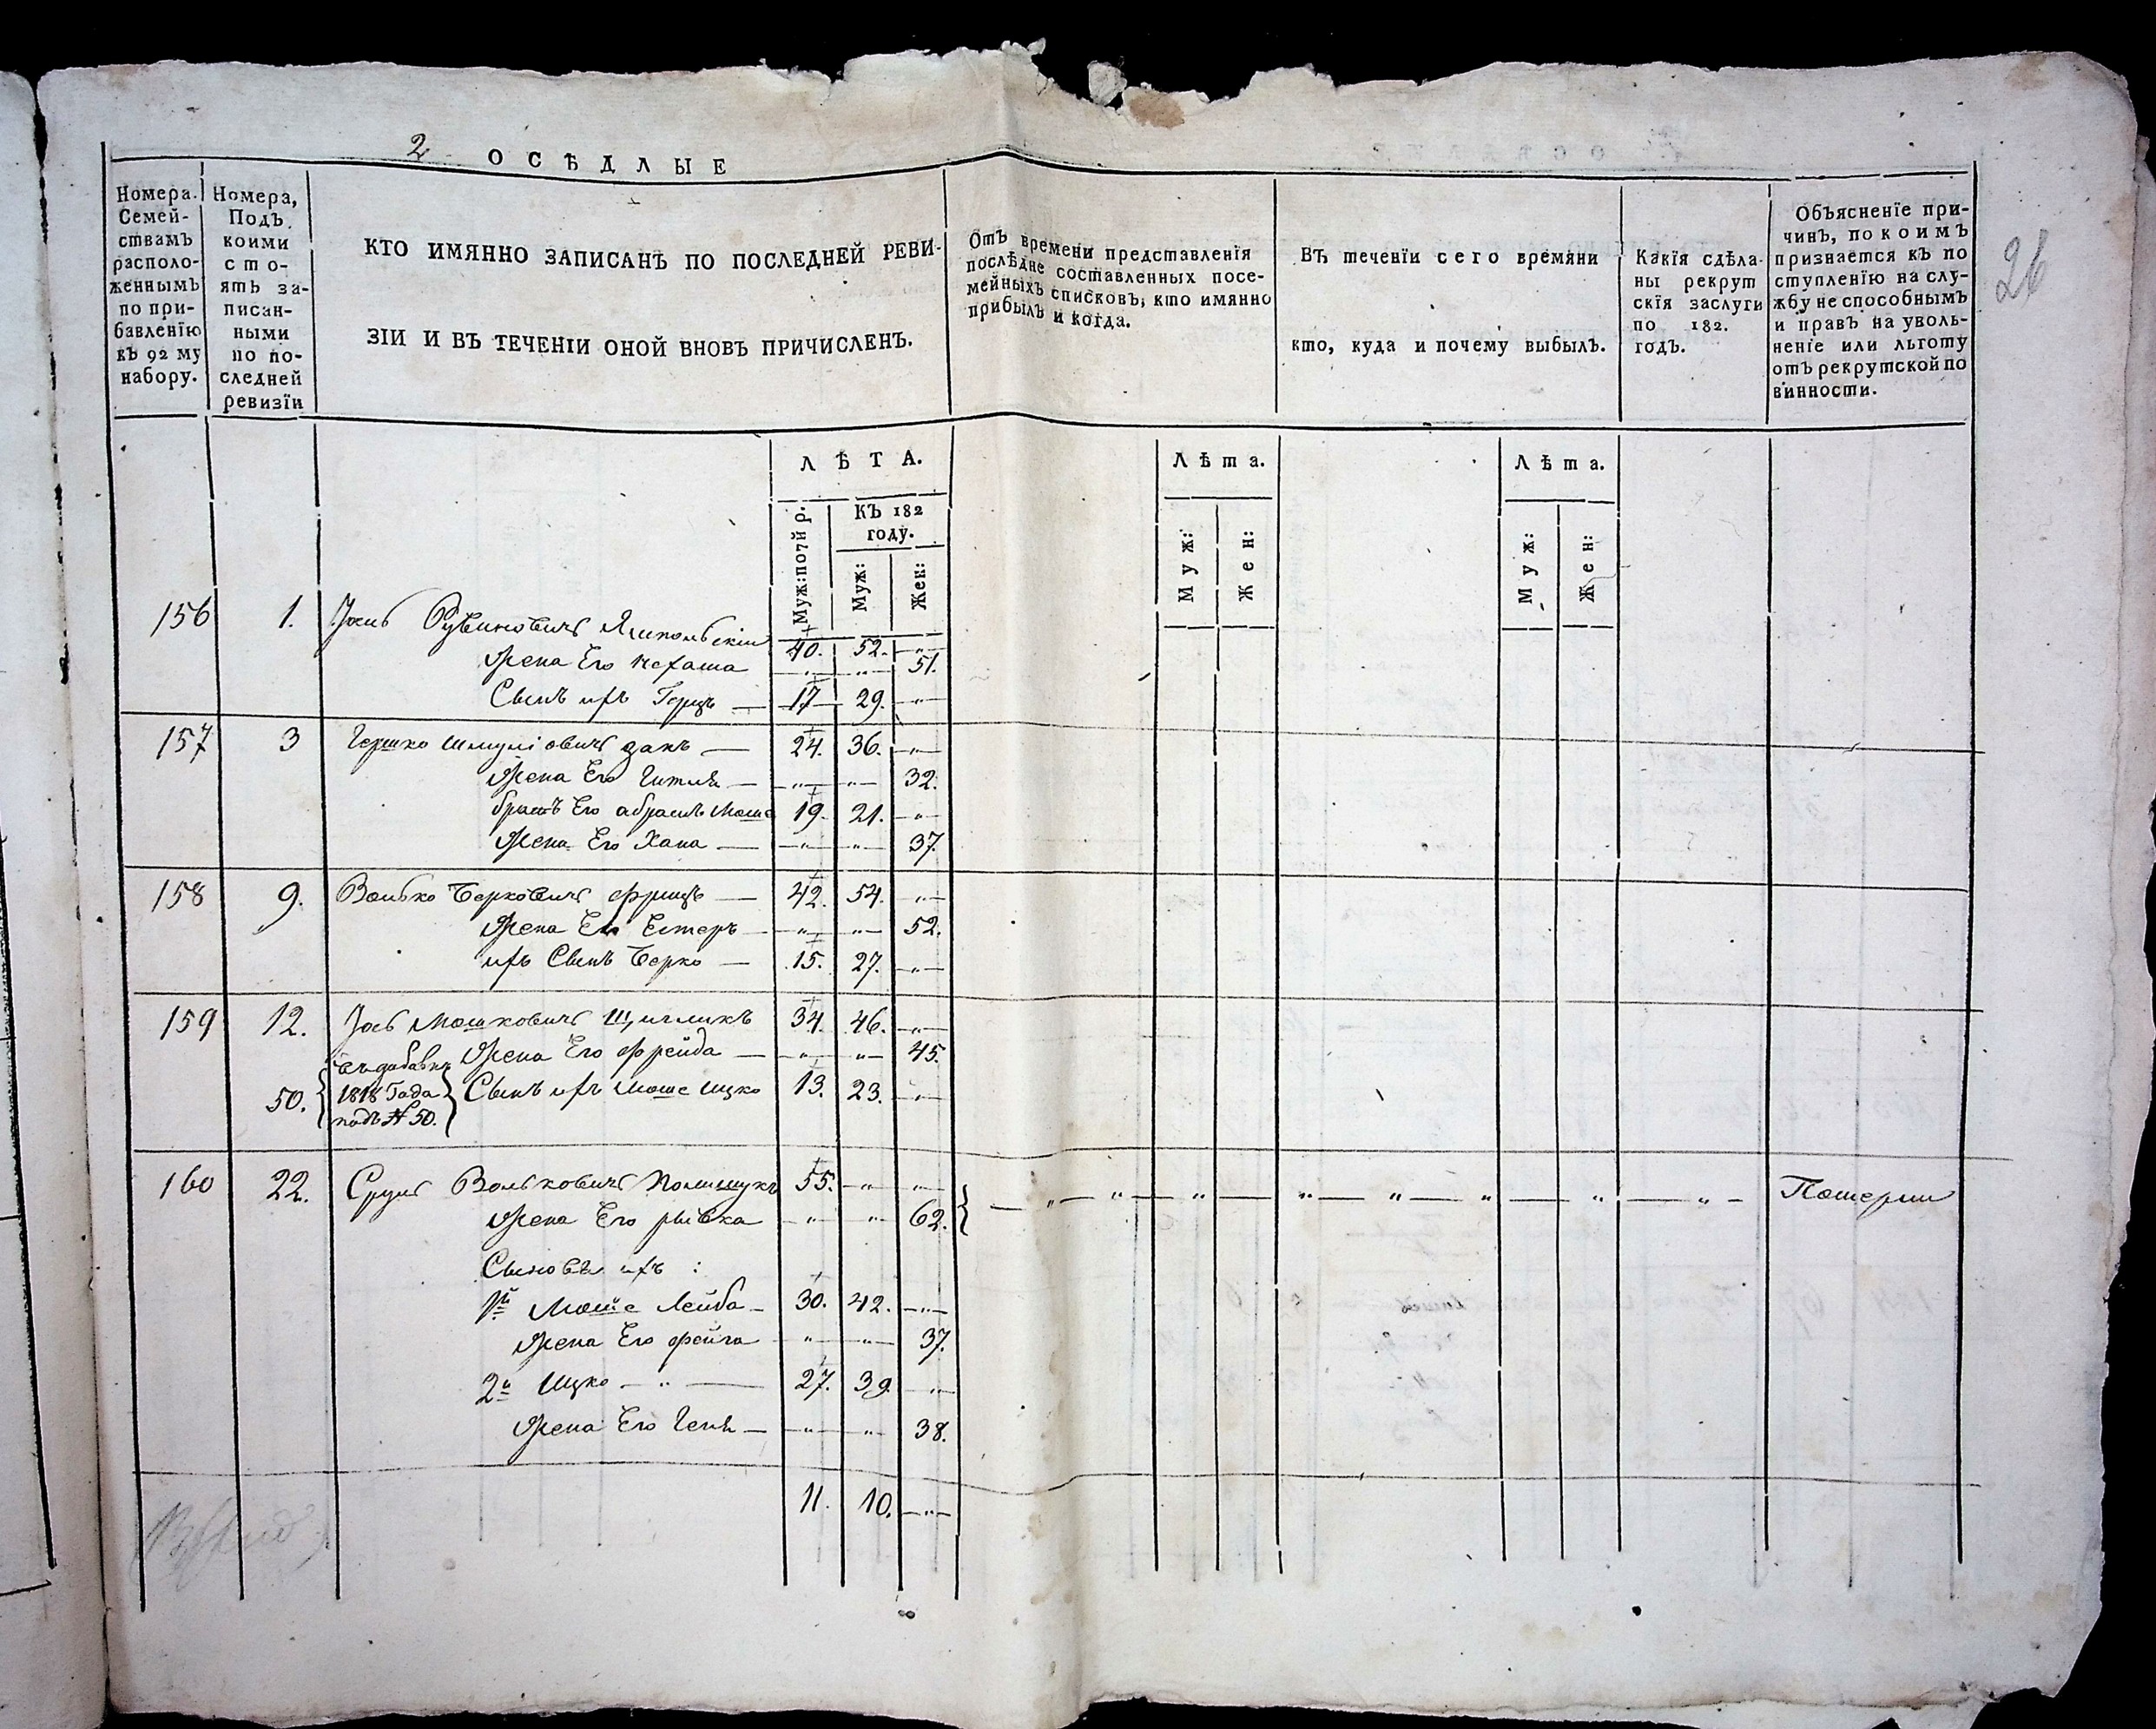 2 ОСѢДЛЫЕ
26
Номера.
Семей-
ствамъ
располо-
женнымъ
по при-
бавленію
къ 92 му
набору.
Номера,
Подъ
коими
сто-
ять за-
писан-
ными
по по-
слѣдней
ревизіи
КТО ИМЯННО ЗАПИСАНЪ ПО ПОСЛЕДНЕЙ РЕВИ-
ЗІИ И ВЪ ТЕЧЕНІИ ОНОЙ ВНОВЬ ПРИЧИСЛЕНЪ.
Отъ времени представленія
послѣдне составленных посе-
мейныхъ списковъ, кто имянно
прибылъ и когда.
Въ теченіи сего времяни
кто, куда и почему выбылъ.
Какія сдѣла-
ны рекрут
скія заслуги
по 182.
годъ.
Объясненіе при-
чинъ, по коимъ
признается къ по
ступленію на слу-
жбу не способнымъ
и правъ на уволь-
неніе или льготу
отъ рекрутской по
винности.
ЛѢТА.
Муж: по 7й р.
КЪ 182
году.
Муж:
Жен:
Лѣта.
Муж:
Жен:
Лѣта.
Муж:
Жен:
156 1. Рувиновичъ Ямпольскій 40. 52. —„—
Жена Его Нехама —„— —„— 51.
Сынъ ихъ Герцъ — 17 29. —„—
157 3 Гершко Шмуліовичъ Закъ — 24. 36. —„—
Жена Его Гитля — —„— —„— 32.
братъ Его абрамъ Моше 19. 21. —„—
Жена Его Хана — —„— —„— 37.
158 9. Волько Берковичъ Фрицъ — 42. 54. —„—
Жена Его Естеръ —„— —„— 52.
ихъ Сынъ Берко — 15. 27. —„—
159 12. Іосъ Мошковичъ 34. 46. —„—
Жена Его Фрейда — —„— —„— 45.
50. 1818 Года Сынъ ихъ Моше Ицко 13. 23. —„—
подъ № 50.
160 22. Сруль Вольковичъ Полищукъ 55. —„— —„—
Жена Его рывка —„— —„— 62. — „ — „ — „ — „ — „ — „ — „ — „ —
Сыновья ихъ :
1й Моше Лейба — 30. 42. —„—
Жена Его фейга —„— —„— 37.
2й Ицко — „ — 27. 39. —„—
Жена Его Геня — —„— —„— 38.
11. 10. —„—